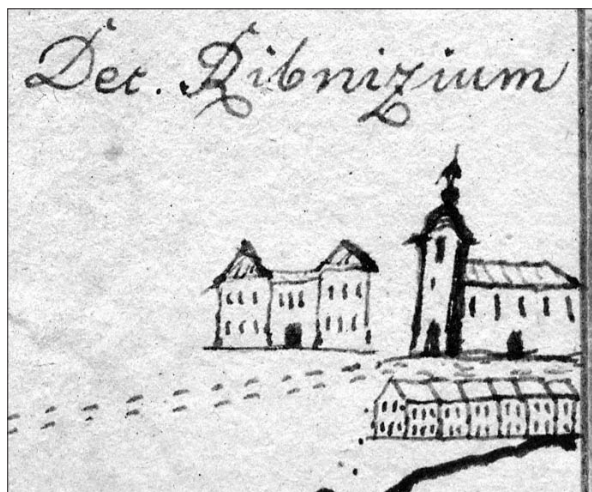 Dec. Ribnizium